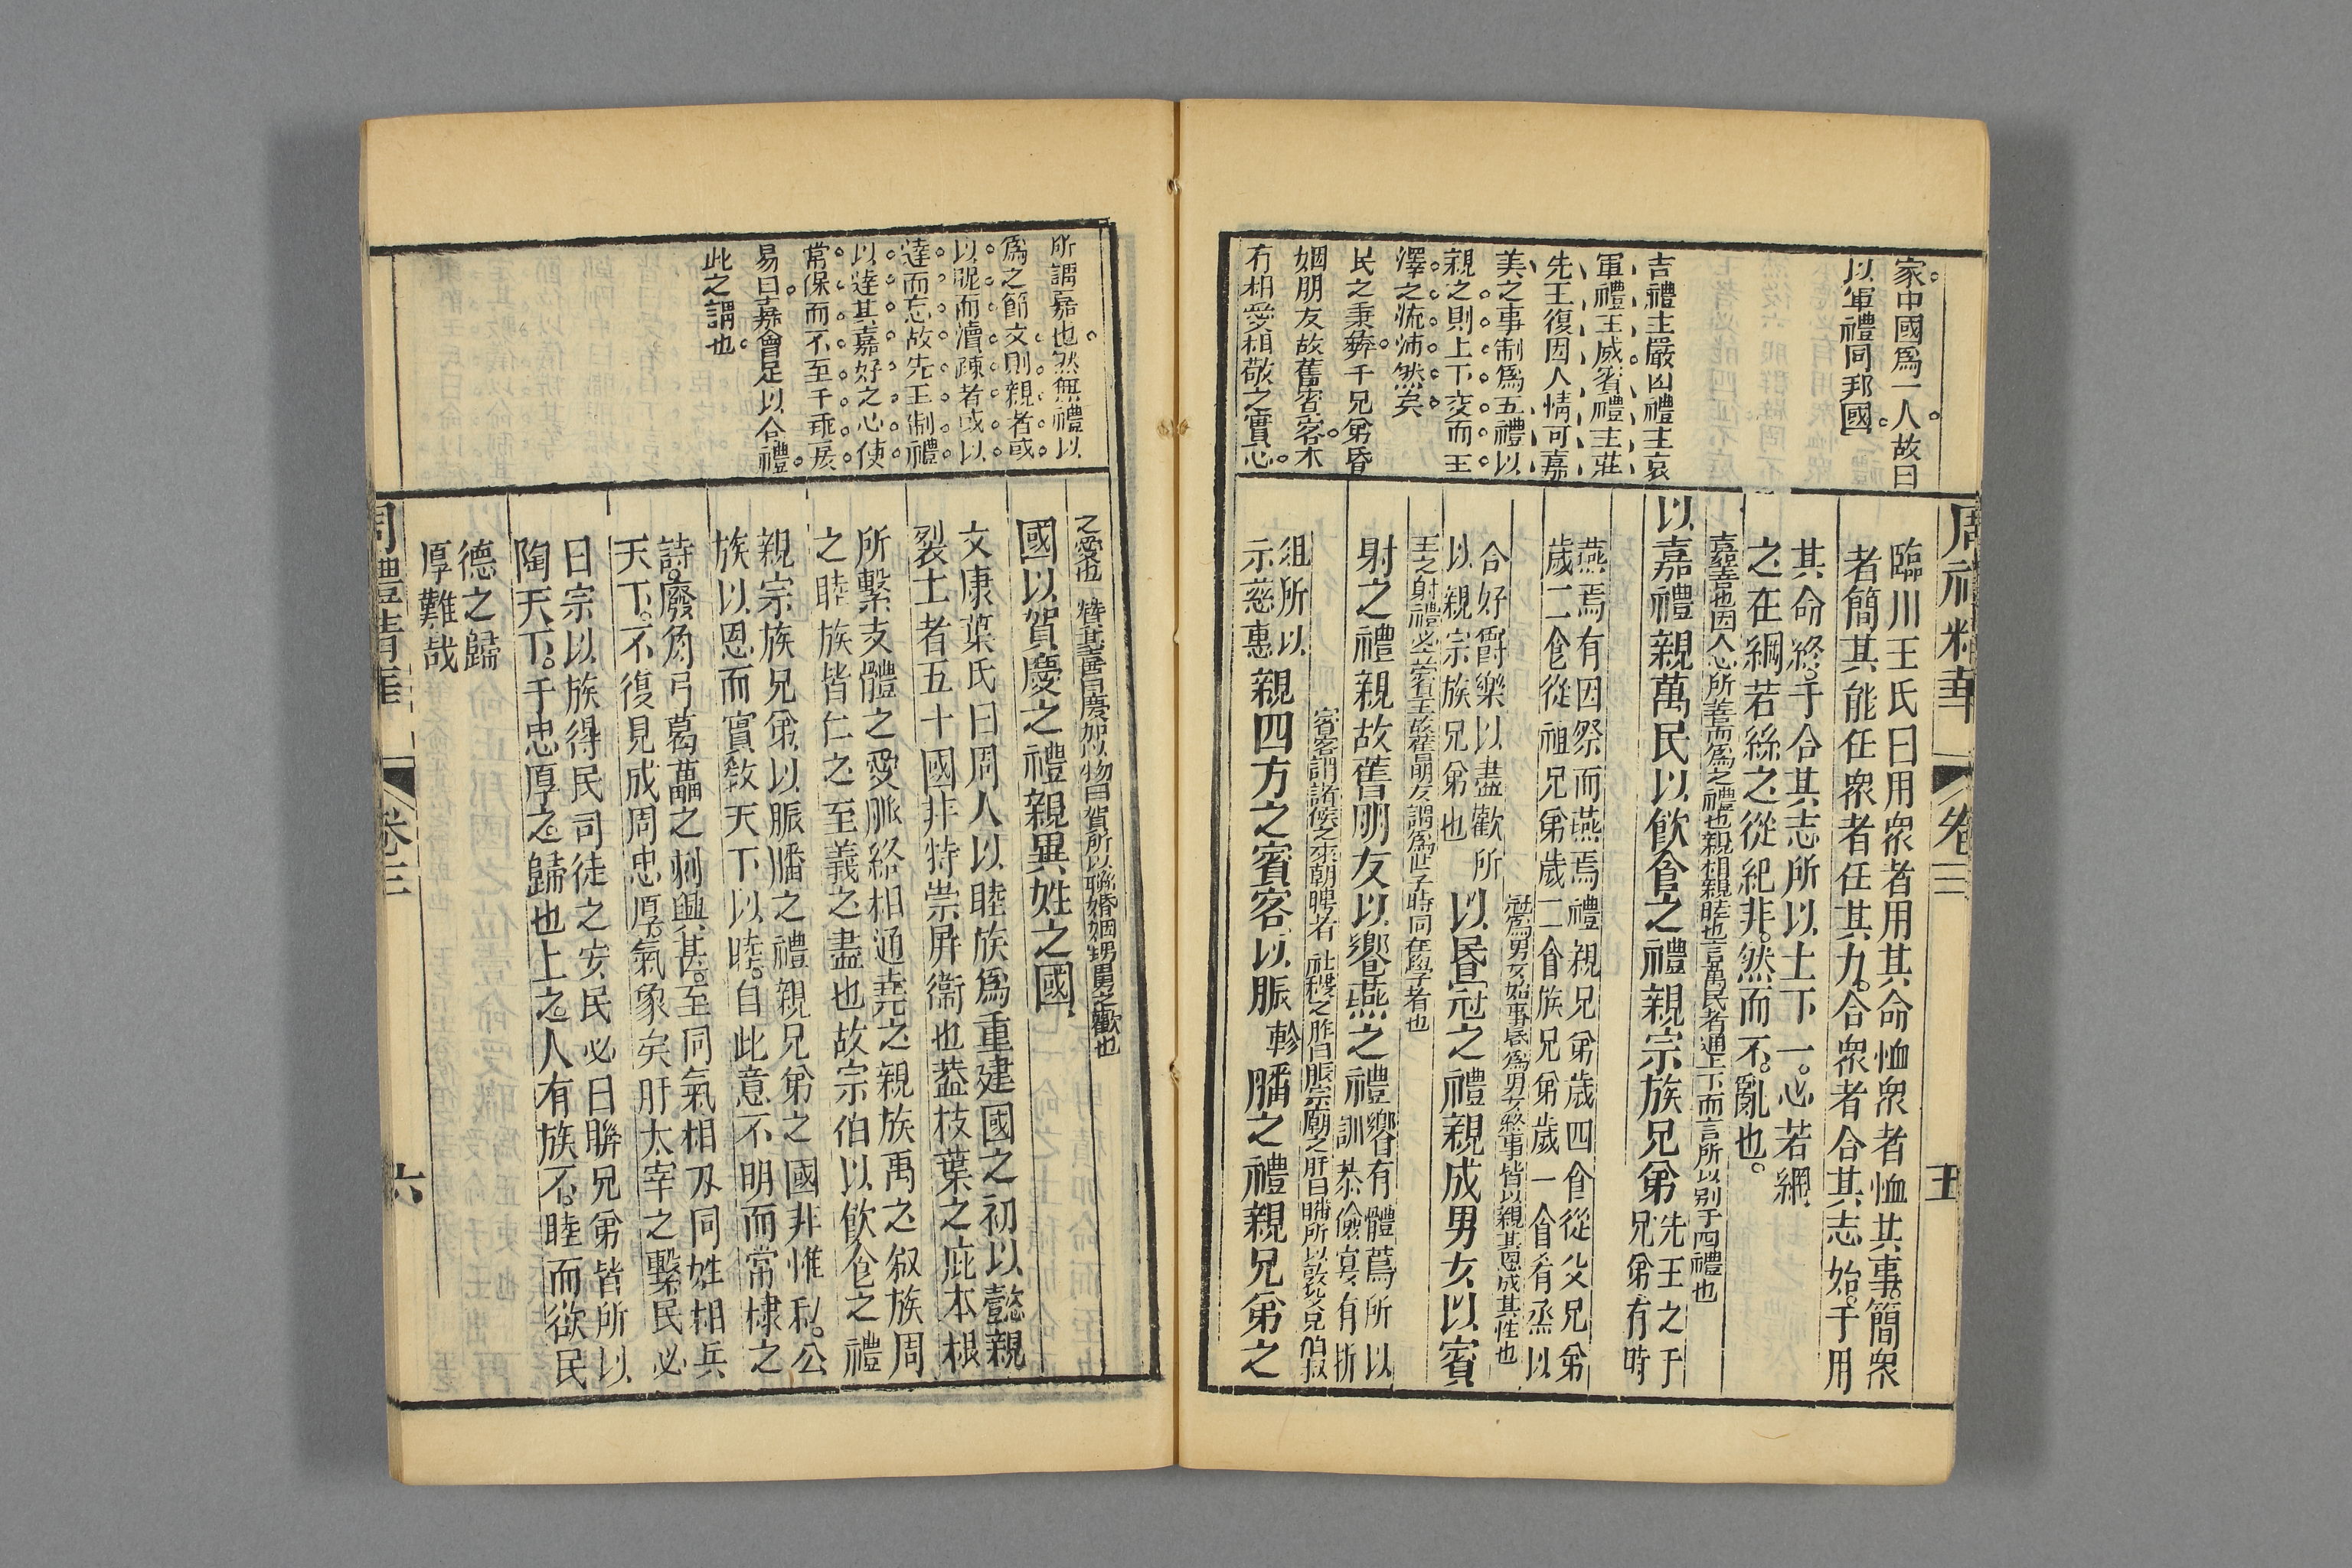 家中國爲一人故曰
以軍禮同邦國
吉禮主嚴凶禮主哀
軍禮主威賓禮主莊
先王復因人情可嘉
美之事制爲五禮以
親之則上下交而王
澤之流沛然矣
民之秉彝于兄弟昏
姻朋友故舊賓客木
有相愛相敬之實心
周禮精華
卷三
五
臨川王氏曰用衆者用其命恤衆者恤其事簡衆
者簡其能任衆者任其力合衆者合其志始于用
其命終于合其志所以上下一心若網
之在綱若絲之從紀非然而不亂也
以嘉禮親萬民以飮食之禮親宗族兄弟
嘉善也因人心所善而爲之禮也親相親睦也言萬民者通上下而言所以別于四禮也
先王之于
兄弟有時
燕焉有因祭而燕焉禮親兄弟歲四食從父兄弟
歲二食從祖兄弟歲二食族兄弟歲一食肴烝以
合好爵樂以盡歡所
以親宗族兄弟也
以昬冠之禮親成男女以賓
冠爲男女始事昏爲男女終事皆以親其恩成其性也
射之禮親故舊朋友以饗燕之禮
王之射禮必賓主故舊朋友謂爲世子時同在學者也
饗有體薦所以
訓恭儉宴有折
俎所以
示慈惠
親四方之賓客以脤膰之禮親兄弟之
賓客謂諸侯之來朝聘者
社稷之胙曰脤宗廟之肝曰膰所以敦父兄伯叔
所謂嘉也然無禮以
爲之節文則親者或
以昵而瀆疎者或以
達而忘故先王制禮
以達其嘉好之心使
常保而不至于乖戾
易曰嘉會足以合禮
此之謂也
之愛也
國以賀慶之禮親異姓之國
文康葉氏曰周人以睦族爲重建國之初以懿親
裂土者五十國非特崇屛衞也葢枝葉之庇本根
所繫支體之愛脈絡相通堯之親族禹之叙族周
之睦族皆仁之至義之盡也故宗伯以飮食之禮
親宗族兄弟以脤膰之禮親兄弟之國非惟私公
族以恩而實敎天下以睦自此意不明而常棣之
詩廢角弓葛藟之刺興甚至同氣相刃同姓相兵
天下不復見成周忠厚氣象矣肝太宰之繫民必
曰宗以族得民司徒之安民必曰聯兄弟皆所以
陶天下于忠厚之歸也上之人有族不睦而欲民
德之歸
厚難哉
周禮精華
卷三
六